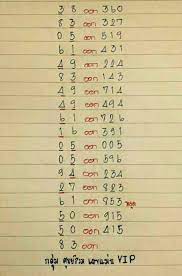 38 ออก 360
83 ออก 327
05 ออก 519
61 ออก 431
49 ออก 224
83 ออก 143
49 ออก 714
49 ออก 494
61 ออก 726
16 ออก 391
05 ออก 005
94 ออก 294
27 ออก 823
61 ออก 853
50 ออก 915
50 ออก 415
83 ออก
กลุ่ม VIP